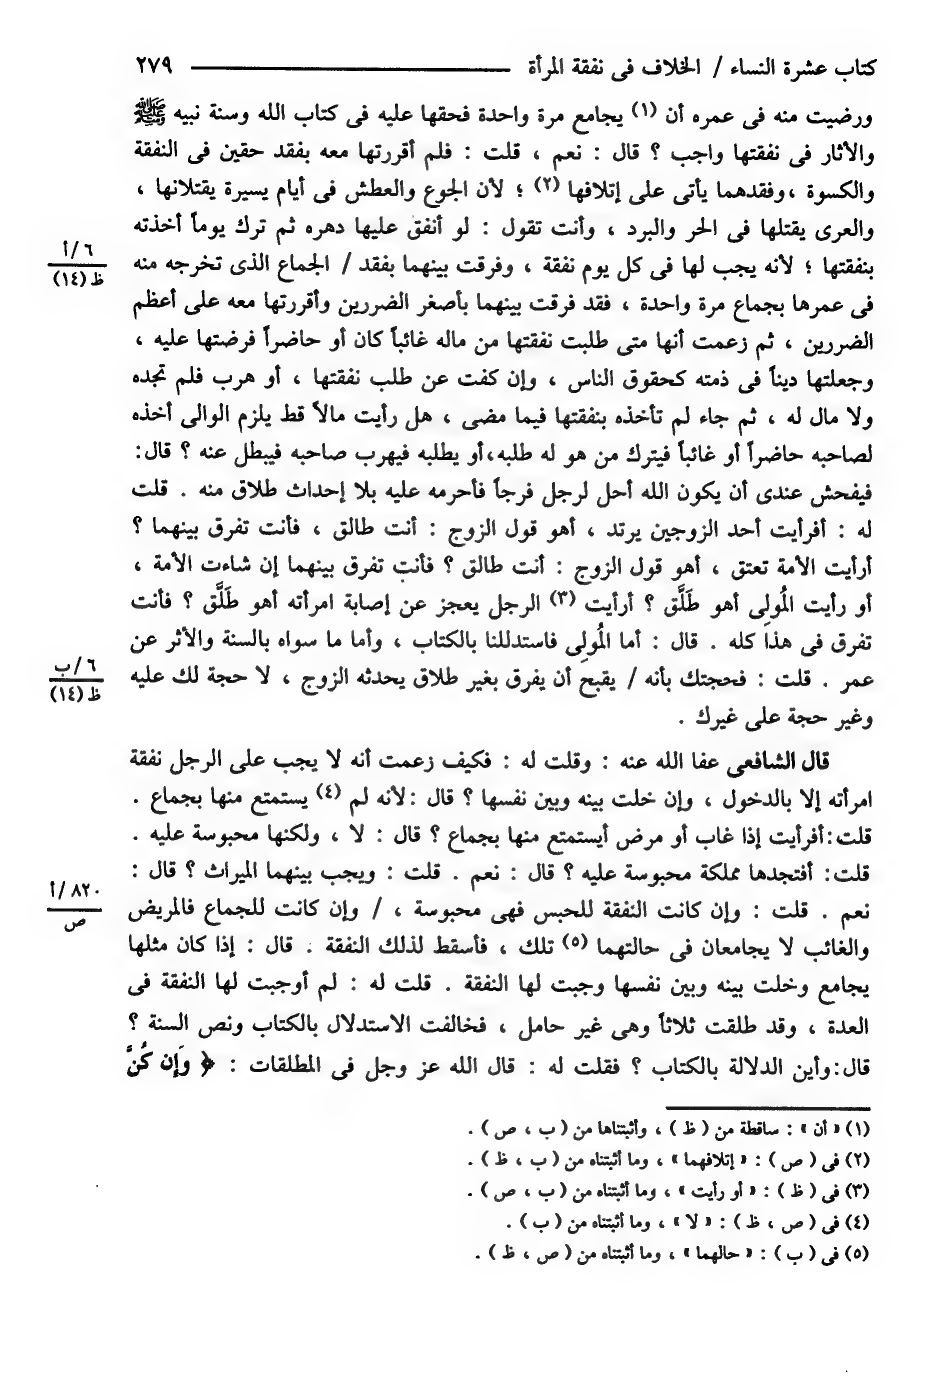 كتاب عشرة النساء / الخلاف فى نفقة المرأة ــــــــــــ ٢٧٩
ورضيت منه فى عمره أن (١) يجامع مرة واحدة فحقها عليه فى كتاب الله وسنة نبيه ﷺ
والأثار فى نفقتها واجب ؟ قال : نعم ، قلت : فلم أقررتها معه بفقد حقين فى النفقة
والكسوة ،وفقدهما يأتى على إتلافها (٢) ؛ لأن الجوع والعطش فى أيام يسيرة يقتلانها ،
والعرى يقتلها فى الحر والبرد ، وأنت تقول : لو أنفق عليها دهره ثم ترك يوماً أخذته
بنفقتها ؛ لأنه يجب لها فى كل يوم نفقة ، وفرقت بينهما بفقد / الجماع الذى تخرجه منه
٦/أ
ظ (١٤)
فى عمرها بجماع مرة واحدة ، فقد فرقت بينهما بأصغر الضررين وأقررتها معه على أعظم
الضررين ، ثم زعمت أنها متى طلبت نفقتها من ماله غائباً كان أو حاضراً فرضتها عليه ،
وجعلتها ديناً فى ذمته كحقوق الناس ، وإن كفت عن طلب نفقتها ، أو هرب فلم تجده
ولا مال له ، ثم جاء لم تأخذه بنفقتها فيما مضى ، هل رأيت مالاً قط يلزم الوالى أخذه
لصاحبه حاضراً أو غائباً فيترك من هو له طلبه،أو يطلبه فيهرب صاحبه فيبطل عنه ؟ قال:
فيفحش عندى أن يكون الله أحل لرجل فرجاً فأحرمه عليه بلا إحداث طلاق منه . قلت
له : أفرأيت أحد الزوجين يرتد ، أهو قول الزوج : أنت طالق ، فأنت تفرق بينهما ؟
أرأيت الأمة تعتق ، أهو قول الزوج : أنت طالق ؟ فأنت تفرق بينهما إن شاءت الأمة ،
أو رأيت المُولِى أهو طَلَّق ؟ أرأيت (٣) الرجل يعجز عن إصابة امرأته أهو طَلَّق ؟ فأنت
تفرق فى هذا كله . قال : أما المُولِى فاستدللنا بالكتاب ، وأما ما سواه بالسنة والأثر عن
عمر . قلت : فحجتك بأنه / يقبح أن يفرق بغير طلاق يحدثه الزوج ، لا حجة لك عليه
٦/ب
ظ (١٤)
وغير حجة على غيرك .
قال الشافعى عفا الله عنه : وقلت له : فكيف زعمت أنه لا يجب على الرجل نفقة
امرأته إلا بالدخول ، وإن خلت بينه وبين نفسها ؟ قال :لأنه لم (٤) يستمتع منها بجماع .
قلت:أفرأيت إذا غاب أو مرض أيستمتع منها بجماع ؟ قال : لا ، ولكنها محبوسة عليه .
قلت: أفتجدها مملكة محبوسة عليه ؟ قال : نعم . قلت : ويجب بينهما الميراث ؟ قال :
نعم . قلت : وإن كانت النفقة للحبس فهى محبوسة ، / وإن كانت للجماع فالمريض
٨٢٠/أ
ص
والغائب لا يجامعان فى حالتهما (٥) تلك ، فأسقط لذلك النفقة . قال : إذا كان مثلها
يجامع وخلت بينه وبين نفسها وجبت لها النفقة . قلت له : لم أوجبت لها النفقة فى
العدة ، وقد طلقت ثلاثاً وهى غير حامل ، فخالفت الاستدلال بالكتاب ونص السنة ؟
قال:وأين الدلالة بالكتاب ؟ فقلت له : قال الله عز وجل فى المطلقات : ﴿ وَإِن كُنَّ
(١) « أن » : ساقطة من ( ظ ) ، وأثبتناها من ( ب ، ص ) .
(٢) فى ( ص ) : « إتلافهما » ، وما أثبتناه من ( ب ، ظ ) .
(٣) فى ( ظ ) : « أو رأيت » ، وما أثبتناه من ( ب ، ص ) .
(٤) فى ( ص ، ظ ) : « لا » ، وما أثبتناه من ( ب ) .
(٥) فى ( ب ) : « حالهما » ، وما أثبتناه من ( ص ، ظ ) .